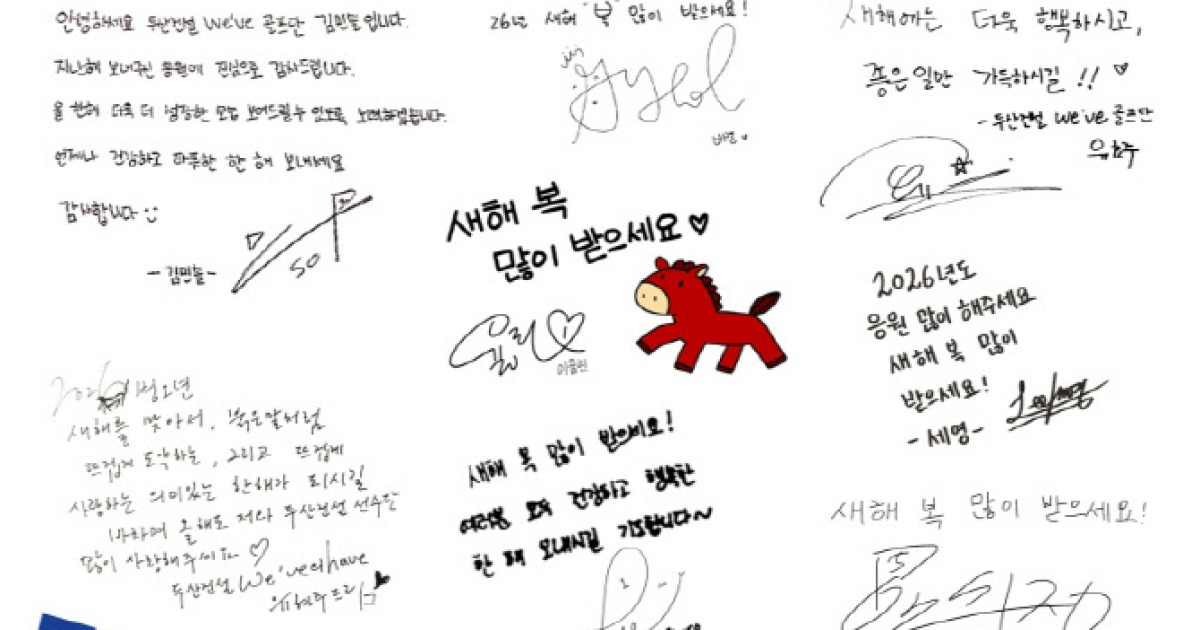 안녕하세요 두산건설 We've 골프단 김민솔입니다.
지난해 보내주신 응원에 진심으로 감사드립니다.
올 한해 더욱 더 성장한 모습 보여드릴 수 있도록 노력하겠습니다.
언제나 건강하고 따뜻한 한 해 보내세요
감사합니다
-김민솔-
SOL
26년 새해 "복" 많이 받으세요!
새해에는 더욱 행복하시고,
좋은일만 가득하시길 !! ♡
- 두산건설 We've 골프단
유효주
새해 복
많이 받으세요♡
율린
이율린
2026년도
응원 많이 해주세요
새해 복 많이
받으세요!
- 세영-
2026 병오년
새해를 맞아서, 붉은말처럼
뜨겁게 도약하는, 그리고 뜨겁게
사랑하는 의미있는 한해가 되시길
바라며 올해도 저와 두산건설 선수단
많이 사랑해주세요 ♡
두산건설 We've the have
유현주 드림
새해 복 많이 받으세요!
여러분 모두 건강하고 행복한
한 해 보내시길 기도합니다~
새해 복 많이 받으세요!